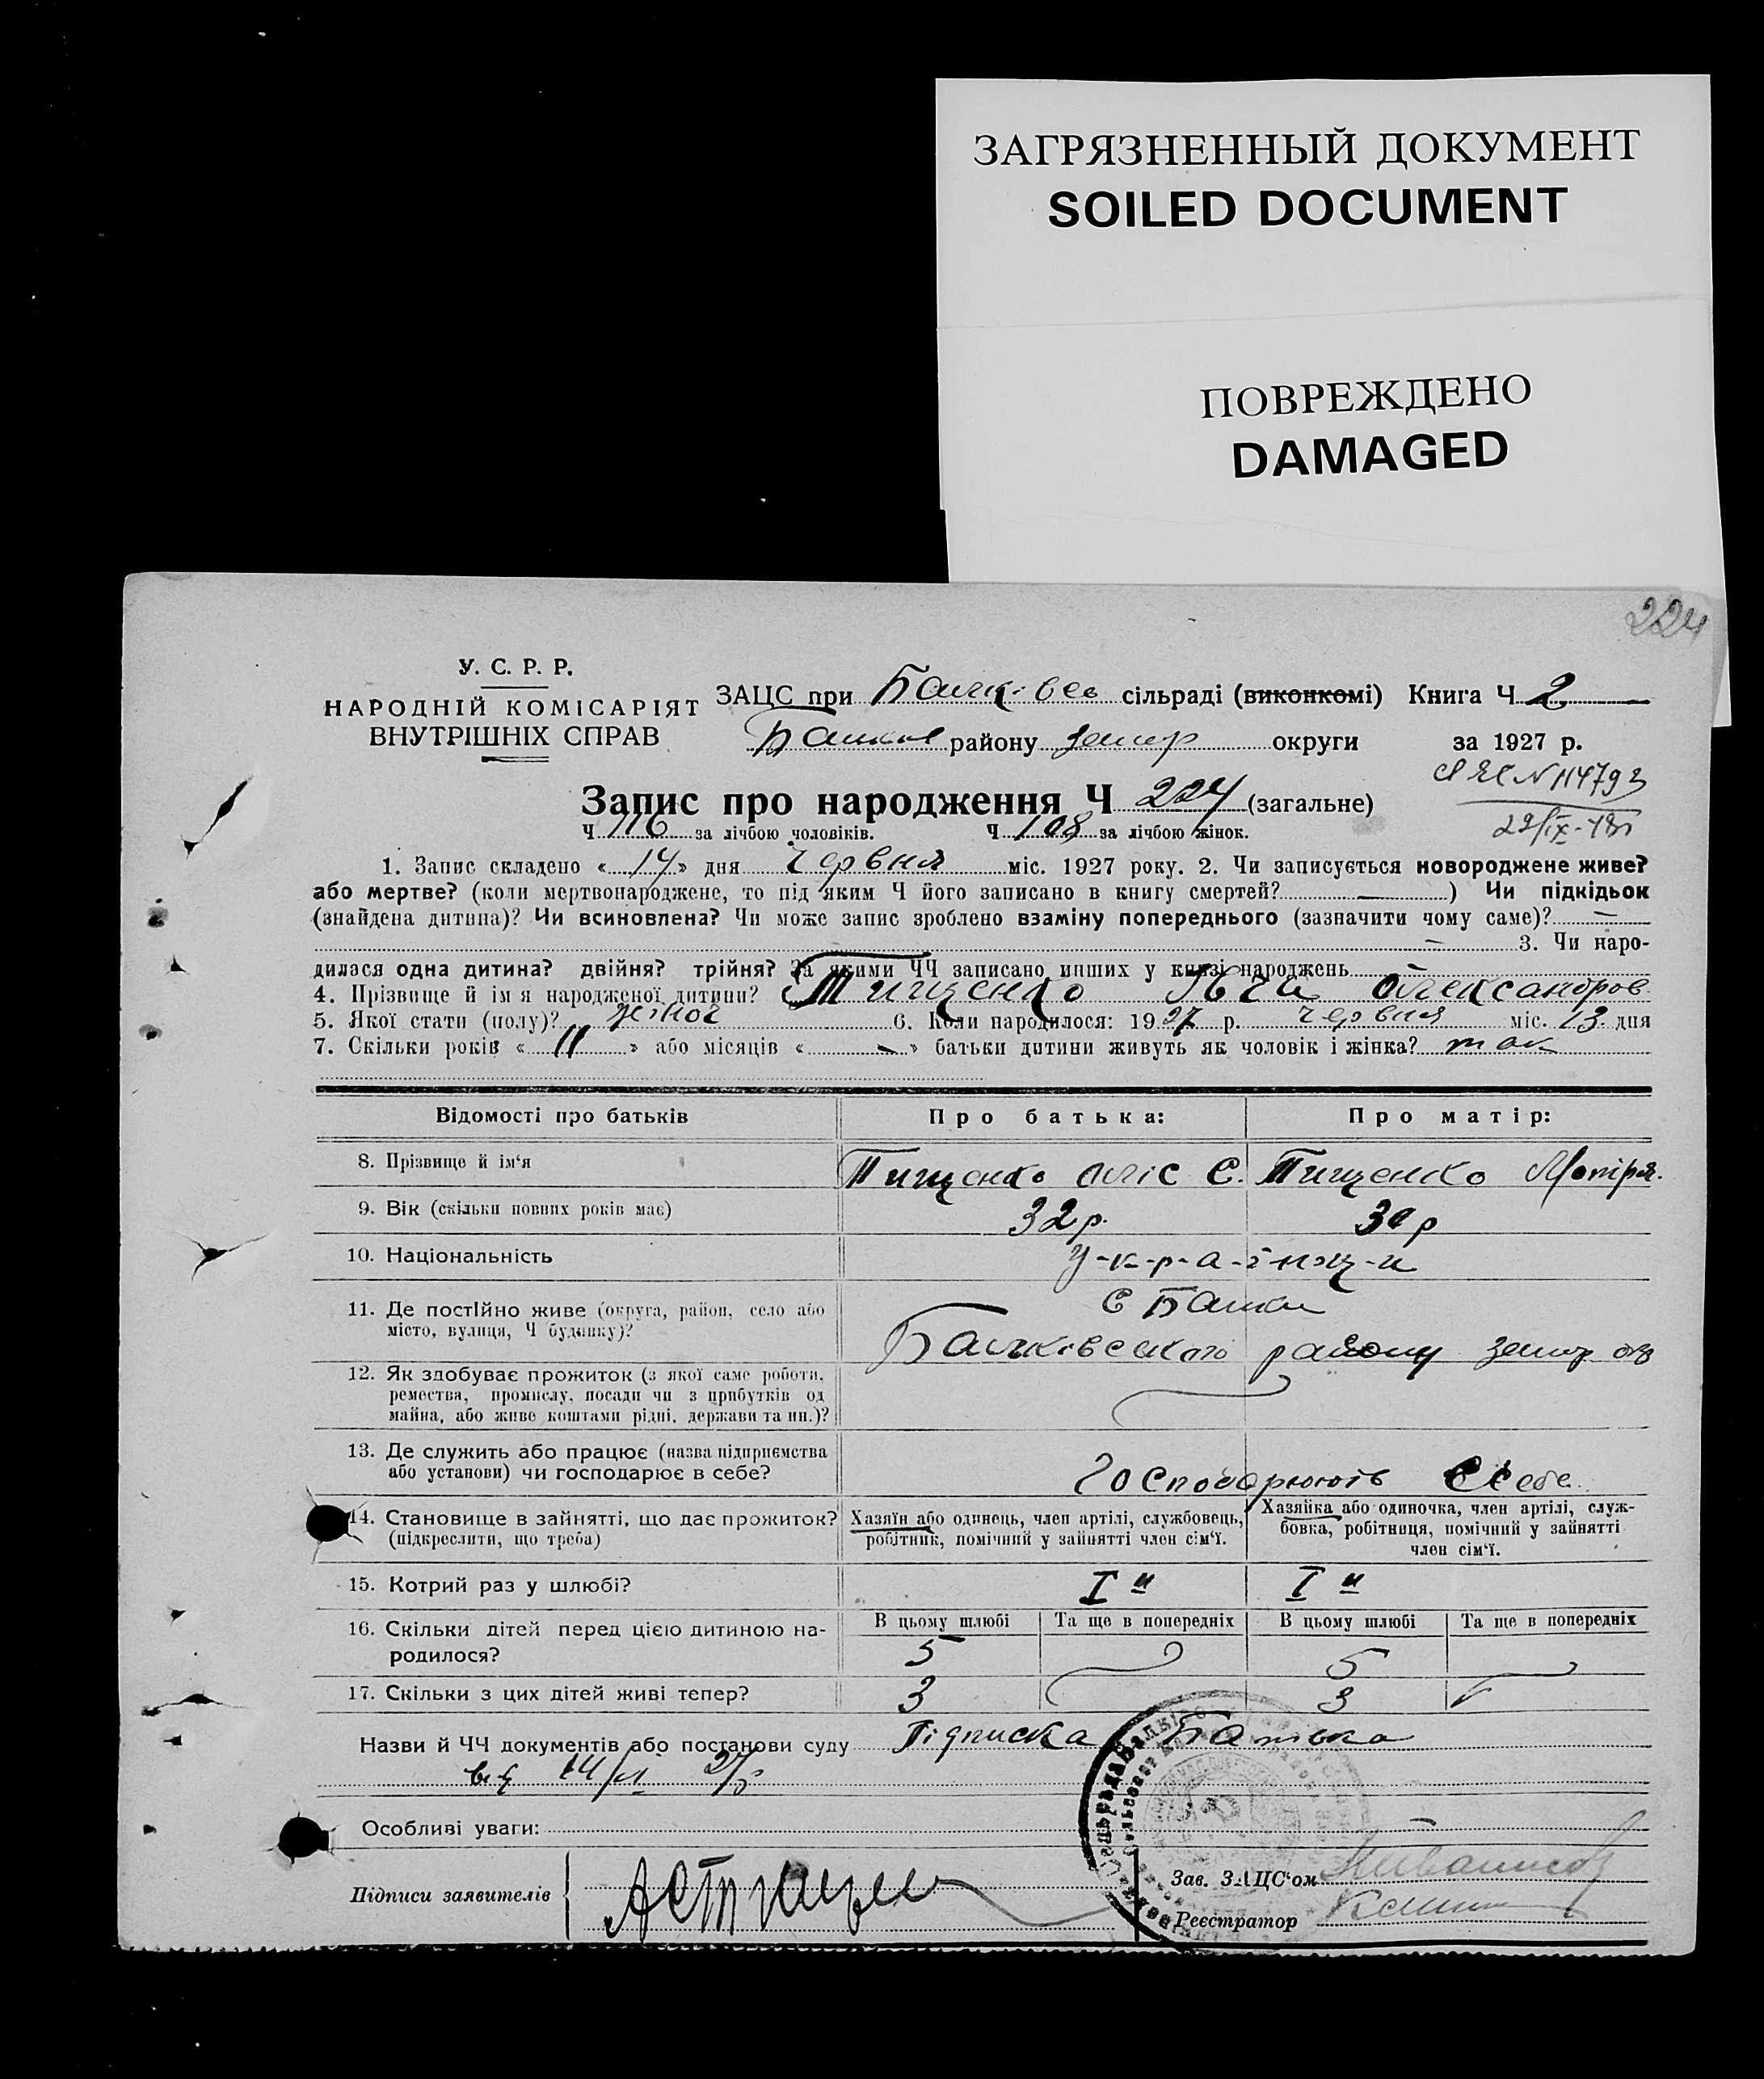 ЗАГРЯЗНЕННЫЙ ДОКУМЕНТ
SOILED DOCUMENT
ПОВРЕЖДЕНО
DAMAGED
224
У. С. Р. Р.
НАРОДНІЙ КОМІСАРІЯТ
ВНУТРІШНІХ СПРАВ
ЗАЦС при сільраді (виконкомі) Книга Ч 2
району округи за 1927 р.
Запис про народження Ч 224 (загальне)
Ч 116 за лічбою чоловіків. Ч 108 за лічбою жінок.
1. Запис складено « 14 » дня Червня міс. 1927 року. 2. Чи записується новороджене живе?
або мертве? (коли мертвонароджене, то під яким Ч його записано в книгу смертей? —) Чи підкідьок
(знайдена дитина)? Чи всиновлена? Чи може запис зроблено взаміну попереднього (зазначити чому саме)? —
— 3. Чи наро-
дилася одна дитина? двійня? трійня? За якими ЧЧ записано инших у книзі народжень
4. Прізвище й ім я народженої дитини? Тищенко Олександров
5. Якої стати (полу)? 6. Коли народилося: 1927 р. червня міс. 13 дня
7. Скільки років « 11 » або місяців « — » батьки дитини живуть як чоловік і жінка? так
Відомості про батьків
Про батька:
Про матір:
8. Прізвище й ім‘я Тищенко С. Тищенко Мотря
9. Вік (скільки повних років має) 32 р. 30 р
10. Національність У-к-р-а-ї-н-ц-и
11. Де постійно живе (округа, район, село або
місто, вулиця, Ч будинку)?
району
12. Як здобуває прожиток (з якої саме роботи,
ремества, промислу, посади чи з прибутків од
майна, або живе коштами рідні, держави та ин.)?
13. Де служить або працює (назва підприємства
або установи) чи господарює в себе? Господарюють в себе
14. Становище в зайнятті, що дає прожиток?
(підкреслити, що треба)
Хазяїн або одинець, член артілі, службовець,
робітник, помічний у зайнятті член сім‘ї.
Хазяйка або одиночка, член артілі, служ-
бовка, робітниця, помічний у зайнятті
член сім‘ї.
15. Котрий раз у шлюбі? I й I й
В цьому шлюбі Та ще в попередніх В цьому шлюбі Та ще в попередніх
16. Скільки дітей перед цією дитиною на-
родилося? 5 5
17. Скільки з цих дітей живі тепер? 3 3
Назви й ЧЧ документів або постанови суду Підписка Батька
від 14/VI 27 р
Особливі уваги:
Підписи заявителів
Зав. ЗАЦС‘ом
Реєстратор